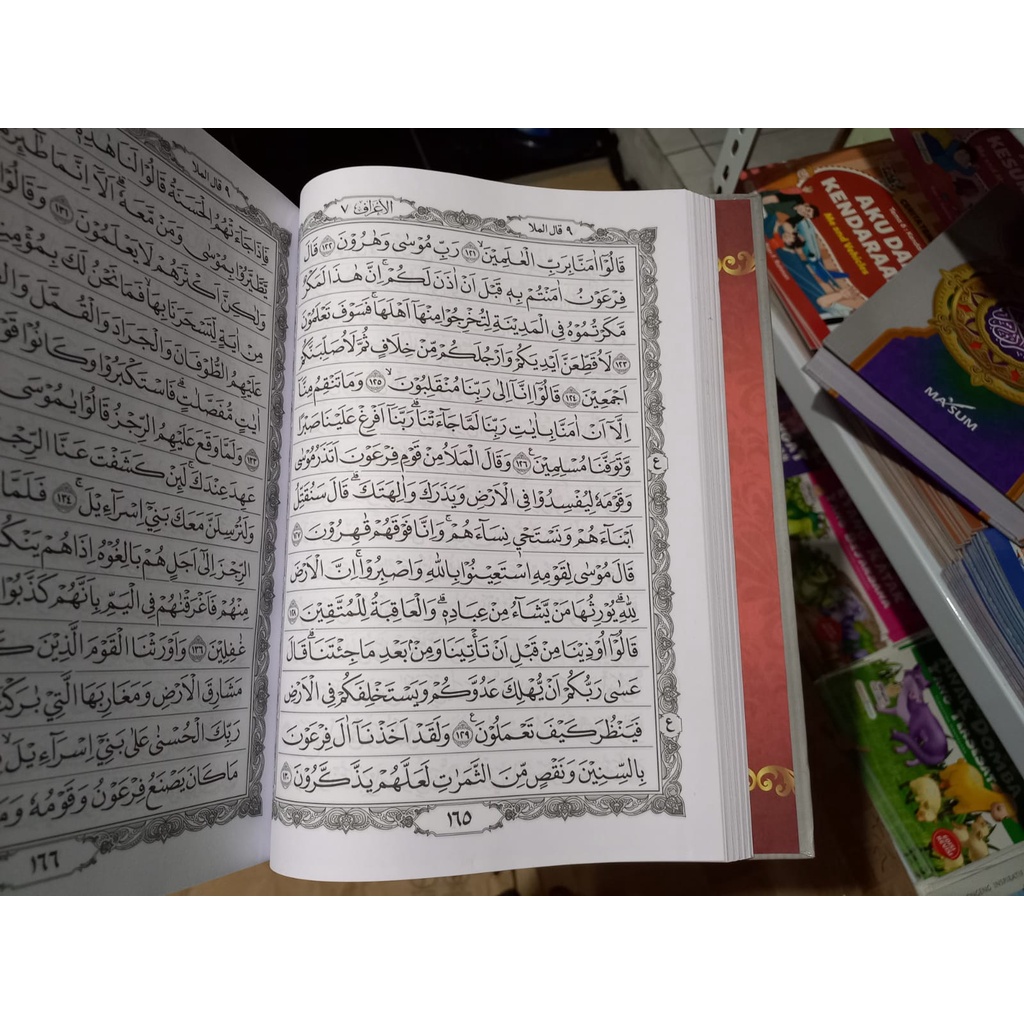 الأعراف ٧
٩ قال الملا
قَالُوْٓا اٰمَنَّا بِرَبِّ الْعٰلَمِيْنَۙ ١٢١ رَبِّ مُوْسٰى وَهٰرُوْنَ ١٢٢ قَالَ
فِرْعَوْنُ اٰمَنْتُمْ بِهٖ قَبْلَ اَنْ اٰذَنَ لَكُمْۚ اِنَّ هٰذَا لَمَكْرٌ
مَّكَرْتُمُوْهُ فِى الْمَدِيْنَةِ لِتُخْرِجُوْا مِنْهَآ اَهْلَهَاۚ فَسَوْفَ تَعْلَمُوْنَ
١٢٣ لَاُقَطِّعَنَّ اَيْدِيَكُمْ وَاَرْجُلَكُمْ مِّنْ خِلَافٍ ثُمَّ لَاُصَلِّبَنَّكُمْ
اَجْمَعِيْنَ ١٢٤ قَالُوْٓا اِنَّآ اِلٰى رَبِّنَا مُنْقَلِبُوْنَۙ ١٢٥ وَمَا تَنْقِمُ مِنَّآ
اِلَّآ اَنْ اٰمَنَّا بِاٰيٰتِ رَبِّنَا لَمَّا جَاۤءَتْنَاۗ رَبَّنَآ اَفْرِغْ عَلَيْنَا صَبْرًا
وَّتَوَفَّنَا مُسْلِمِيْنَۚ ١٢٦ وَقَالَ الْمَلَاُ مِنْ قَوْمِ فِرْعَوْنَ اَتَذَرُ مُوْسٰى
وَقَوْمَهٗ لِيُفْسِدُوْا فِى الْاَرْضِ وَيَذَرَكَ وَاٰلِهَتَكَۗ قَالَ سَنُقَتِّلُ
اَبْنَاۤءَهُمْ وَنَسْتَحْيٖ نِسَاۤءَهُمْۚ وَاِنَّا فَوْقَهُمْ قٰهِرُوْنَ ١٢٧
قَالَ مُوْسٰى لِقَوْمِهِ اسْتَعِيْنُوْا بِاللّٰهِ وَاصْبِرُوْاۚ اِنَّ الْاَرْضَ
لِلّٰهِۗ يُوْرِثُهَا مَنْ يَّشَاۤءُ مِنْ عِبَادِهٖۗ وَالْعَاقِبَةُ لِلْمُتَّقِيْنَ ١٢٨
قَالُوْٓا اُوْذِيْنَا مِنْ قَبْلِ اَنْ تَأْتِيَنَا وَمِنْۢ بَعْدِ مَا جِئْتَنَاۗ قَالَ
عَسٰى رَبُّكُمْ اَنْ يُّهْلِكَ عَدُوَّكُمْ وَيَسْتَخْلِفَكُمْ فِى الْاَرْضِ
فَيَنْظُرَ كَيْفَ تَعْمَلُوْنَ ١٢٩ وَلَقَدْ اَخَذْنَآ اٰلَ فِرْعَوْنَ
بِالسِّنِيْنَ وَنَقْصٍ مِّنَ الثَّمَرٰتِ لَعَلَّهُمْ يَذَّكَّرُوْنَ ١٣٠
ع
ع
١٦٥
٩ قال الملا
فَاِذَا جَاۤءَتْهُمُ الْحَسَنَةُ قَالُوْا لَنَا هٰذِهٖ
يَّطَّيَّرُوْا بِمُوْسٰى وَمَنْ مَّعَهٗۗ اَلَآ اِنَّمَا طٰۤىِٕرُ
وَلٰكِنَّ اَكْثَرَهُمْ لَا يَعْلَمُوْنَ ١٣١ وَقَالُوْا
مِنْ اٰيَةٍ لِّتَسْحَرَنَا بِهَاۙ فَمَا نَحْنُ لَكَ بِمُؤْمِنِيْنَ
١٣٢
عَلَيْهِمُ الطُّوْفَانَ وَالْجَرَادَ وَالْقُمَّلَ
اٰيٰتٍ مُّفَصَّلٰتٍۗ فَاسْتَكْبَرُوْا وَكَانُوْا
وَلَمَّا وَقَعَ عَلَيْهِمُ الرِّجْزُ قَالُوْا يٰمُوْسَى
عَهِدَ عِنْدَكَۚ لَىِٕنْ كَشَفْتَ عَنَّا الرِّجْزَ
وَلَنُرْسِلَنَّ مَعَكَ بَنِيْٓ اِسْرَاۤءِيْلَۚ ١٣٤ فَلَمَّا
الرِّجْزَ اِلٰٓى اَجَلٍ هُمْ بَالِغُوْهُ اِذَا هُمْ
مِنْهُمْ فَاَغْرَقْنٰهُمْ فِى الْيَمِّ بِاَنَّهُمْ كَذَّبُوْا
غٰفِلِيْنَ ١٣٦ وَاَوْرَثْنَا الْقَوْمَ الَّذِيْنَ
مَشَارِقَ الْاَرْضِ وَمَغَارِبَهَا الَّتِيْ
رَبِّكَ الْحُسْنٰى عَلٰى بَنِيْٓ اِسْرَاۤءِيْلَۙ
مَا كَانَ يَصْنَعُ فِرْعَوْنُ وَقَوْمُهٗ
١٦٦
AKU DAN
KENDARAA
Me and Vehicles
MA'SUM
DOMBA